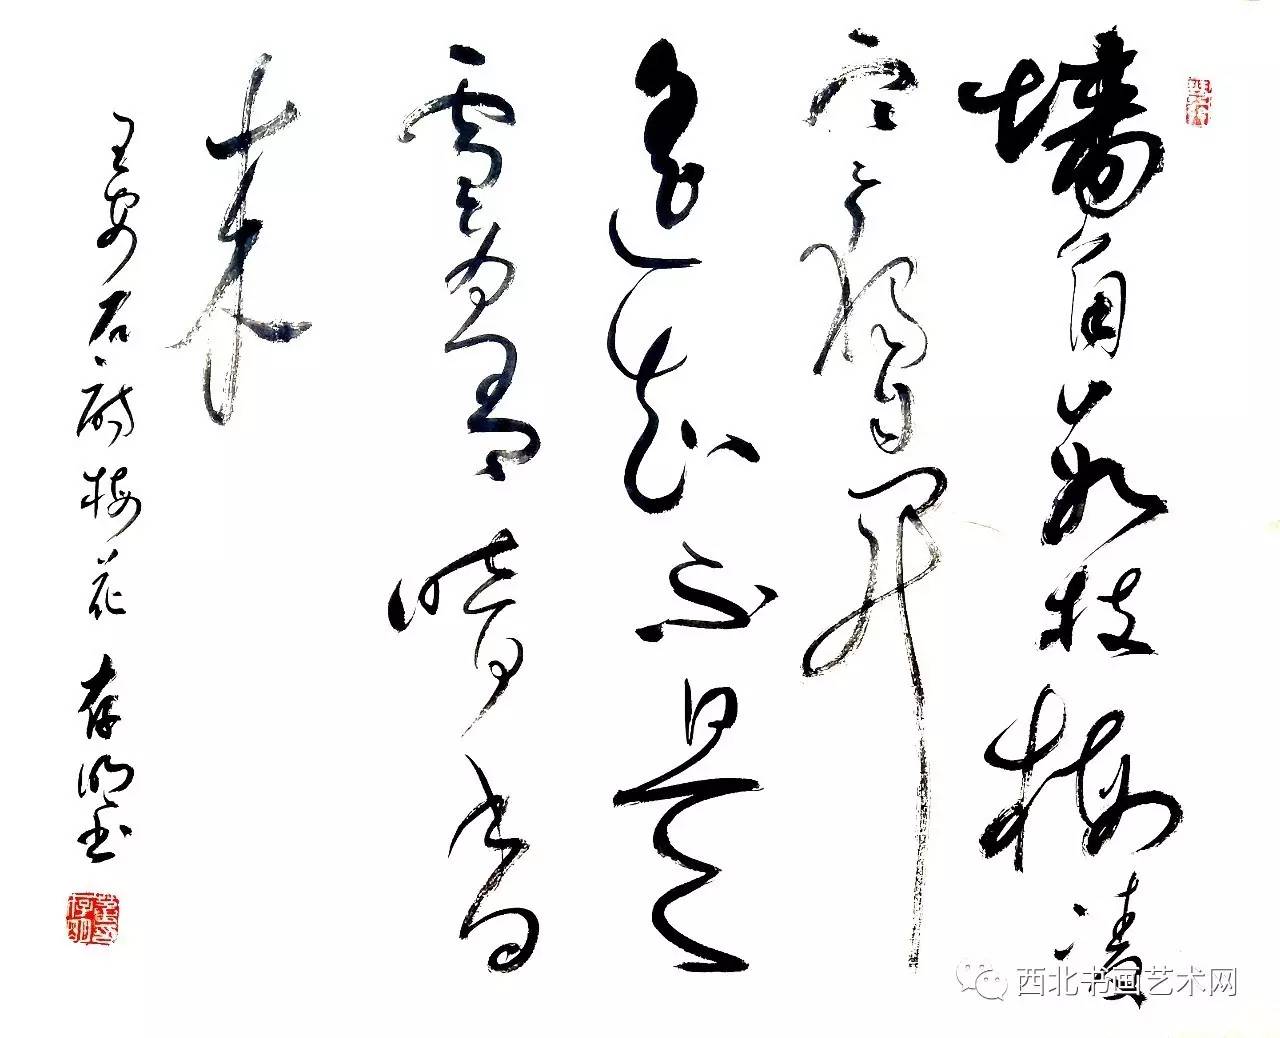 墙角数枝梅凌
寒独自开
遥知不是
雪为有暗香
来
王安石诗梅花 存明书
西北书画艺术网